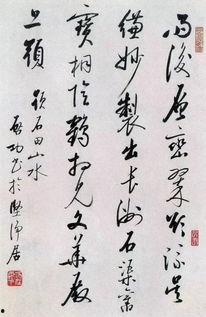 雨後層巒翠欲流吳
縑妙製出長洲石渠舊
寶桐陰鶴相見文華殿
上頭 題石田山水
啓功書於堅淨居